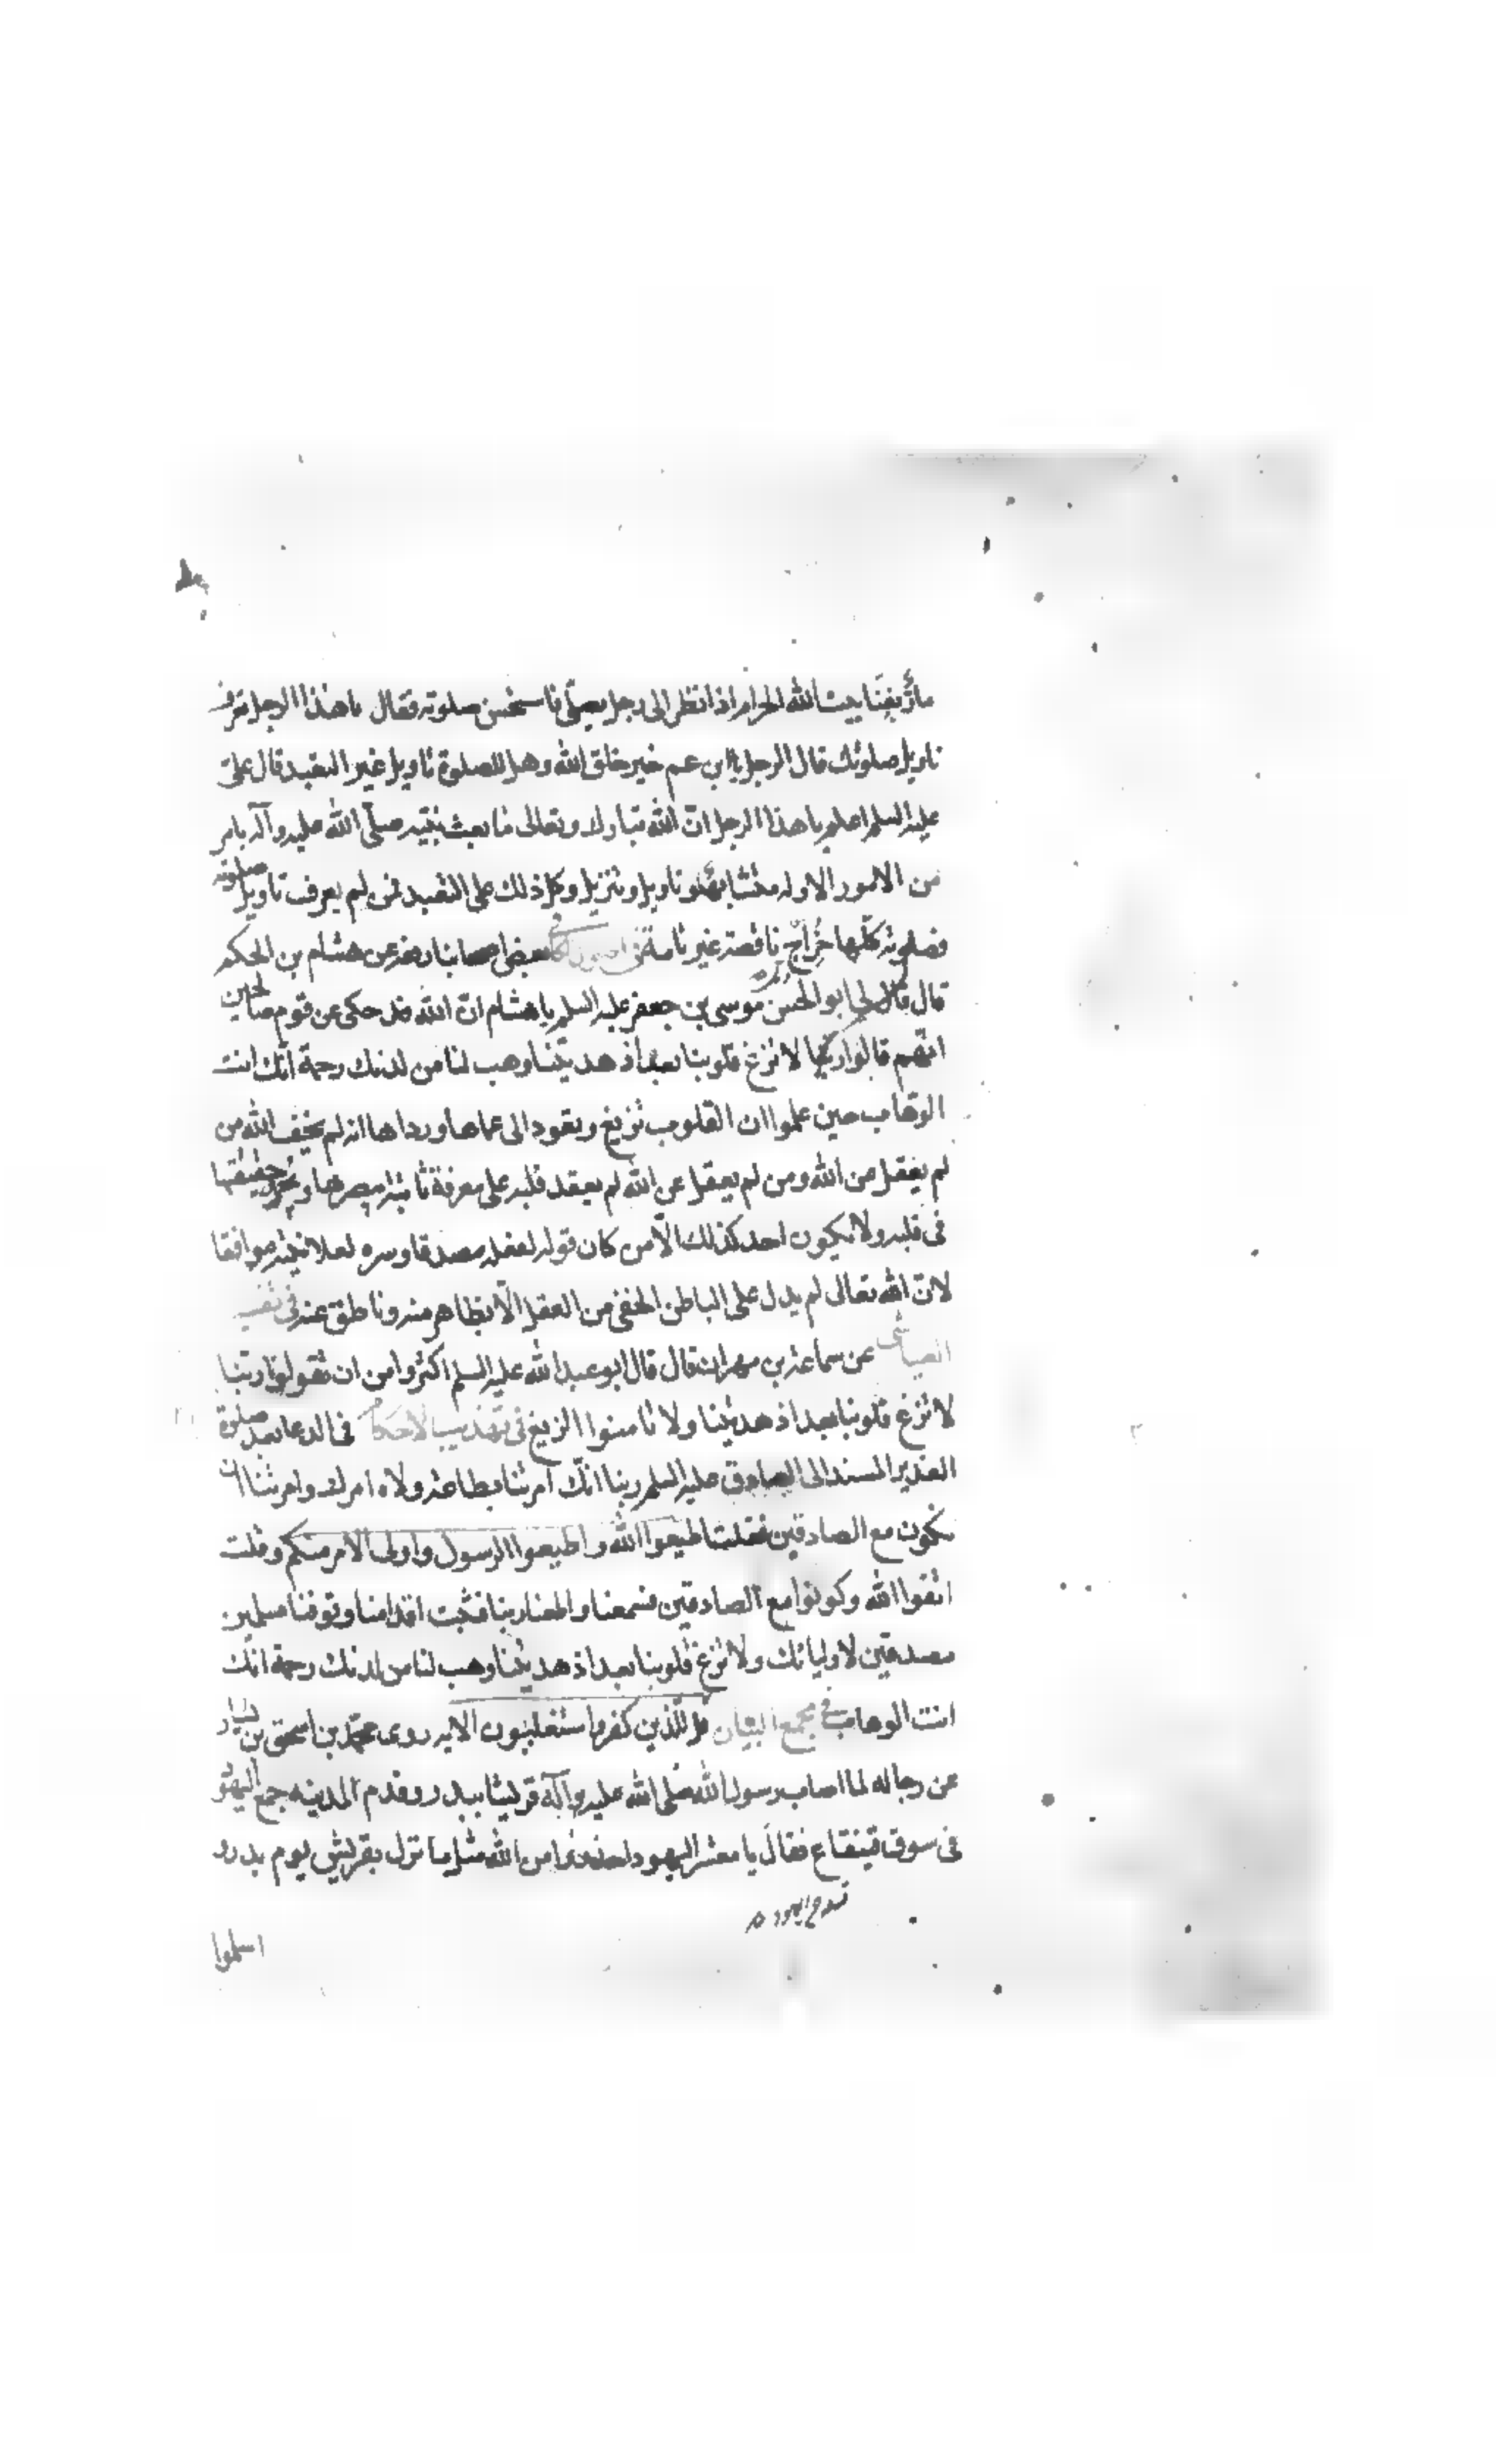 مارّ بفِنَا بيت الله الحرام اذا نظر الى رجل يصلّى فاستحسن صلوته فقال يا هذا الرجل تعرف
تاويل صلوتك قال الرجل يا ابن عم خير خلق الله وهل للصلوة تاويل غير التعبد قال علىّ
عليه السلم اعلم يا هذا الرجل انّ الله تبارك وتعالى ما بعث نبيّه صلّى الله عليه وآله بامر
من الامور الا وله متشابه وتاويل وتنزيل وكل ذلك على التعبد فمن لم يعرف تاويل صلوته
فصلوته كلّها خِدَاجٌ ناقصة غير تامة فى اصول كافى بعض اصحابنا رفعه عن هشام بن الحكم
قال قال لى ابو الحسن موسى بن جعفر عليه السلم يا هشام انّ الله قد حكى عن قوم صالحين
انّهم قالوا ربّنا لا تزغ قلوبنا بعد اذ هديتنا وهب لنا من لدنك رحمة انّك انت
الوهّاب حين علموا ان القلوب تزيغ وتعود الى عماها ورداها انه لم يخف الله من
لم يعقل عن الله ومن لم يعقل عن الله لم يعقد قلبه على معرفة ثابتة يبصرها ويجد حقيقتها
فى قلبه ولا يكون احد كذلك الّا من كان قوله لفعله مصدقا وسره لعلانيته موافقا
لانّ الله تعالى لم يدل على الباطن الخفى من العقل الّا بظاهر منه وناطق عنه فى تفسير
العياشى عن سماعة بن مهران قال قال ابو عبد الله عليه السلم اكثروا من ان تقولوا ربّنا
لا تزغ قلوبنا بعد اذ هديتنا ولا تامنوا الزيغ فى تهذيب الاحكام فى الدعا بعد صلوة
الغدير المسند الى الصادق عليه السلم ربنا انّك امرتنا بطاعة ولاه امرك وامرتنا ان
نكون مع الصادقين فقلت اطيعوا الله واطيعوا الرسول واولى الامر منكم وقلت
اتقوا الله وكونوا مع الصادقين فسمعنا واطعنا ربنا فثبت اقدامنا وتوفنا مسلمين
مصدقين لاوليائك ولا تزغ قلوبنا بعد اذ هديتنا وهب لنا من لدنك رحمة انّك
انت الوهاب فى مجمع البيان قل للّذين كفروا ستغلبون الايه روى محمّد بن اسحق بن يسار
عن رجاله لما اصاب رسول الله صلى الله عليه وآله قريشا ببدر وقدم المدينه جمع اليهود
فى سوق قينقاع فقال يا معشر اليهود احذروا من الله مثل ما نزل بقريش يوم بدر و
اسلموا